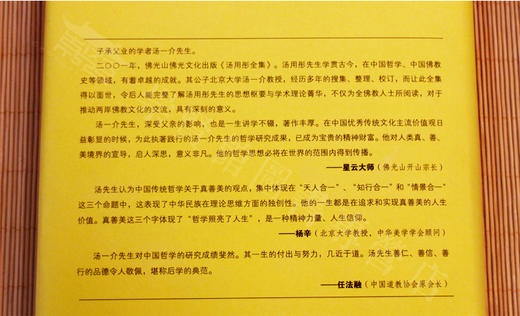 子承父业的学者汤一介先生。
二〇〇一年，佛光山佛光文化出版《汤用彤全集》。汤用彤先生学贯古今，在中国哲学、中国佛教
史等领域，有着卓越的成就。其公子北京大学汤一介教授，经历多年的搜集、整理、校订，而让此全集
得以面世，令后人能完整了解汤用彤先生的思想枢要与学术理论菁华，不仅为全佛教人士所阅读，对于
推动两岸佛教文化的交流，具有深刻的意义。
汤一介先生，深受父亲的影响，也是一生讲学不辍，著作丰厚。在中国优秀传统文化主流价值观日
益彰显的时候，为此执著践行的汤一介先生的哲学研究成果，已成为宝贵的精神财富。他对人类真、善、
美境界的宣导，启人深思，意义非凡。他的哲学思想必将在世界的范围内得到传播。
——星云大师（佛光山开山宗长）
汤先生认为中国传统哲学关于真善美的观点，集中体现在“天人合一”、“知行合一”和“情景合一”
这三个命题中，这表现了中华民族在理论思维方面的独创性。他的一生都是在追求和实现真善美的人生
价值。真善美这三个字体现了“哲学照亮了人生”，是一种精神力量、人生信仰。
——杨辛（北京大学教授，中华美学学会顾问）
汤一介先生对中国哲学的研究成绩斐然。其一生的付出与努力，几近于道。汤先生善仁、善信、善
行的品德令人敬佩，堪称后学的典范。
——任法融（中国道教协会原会长）